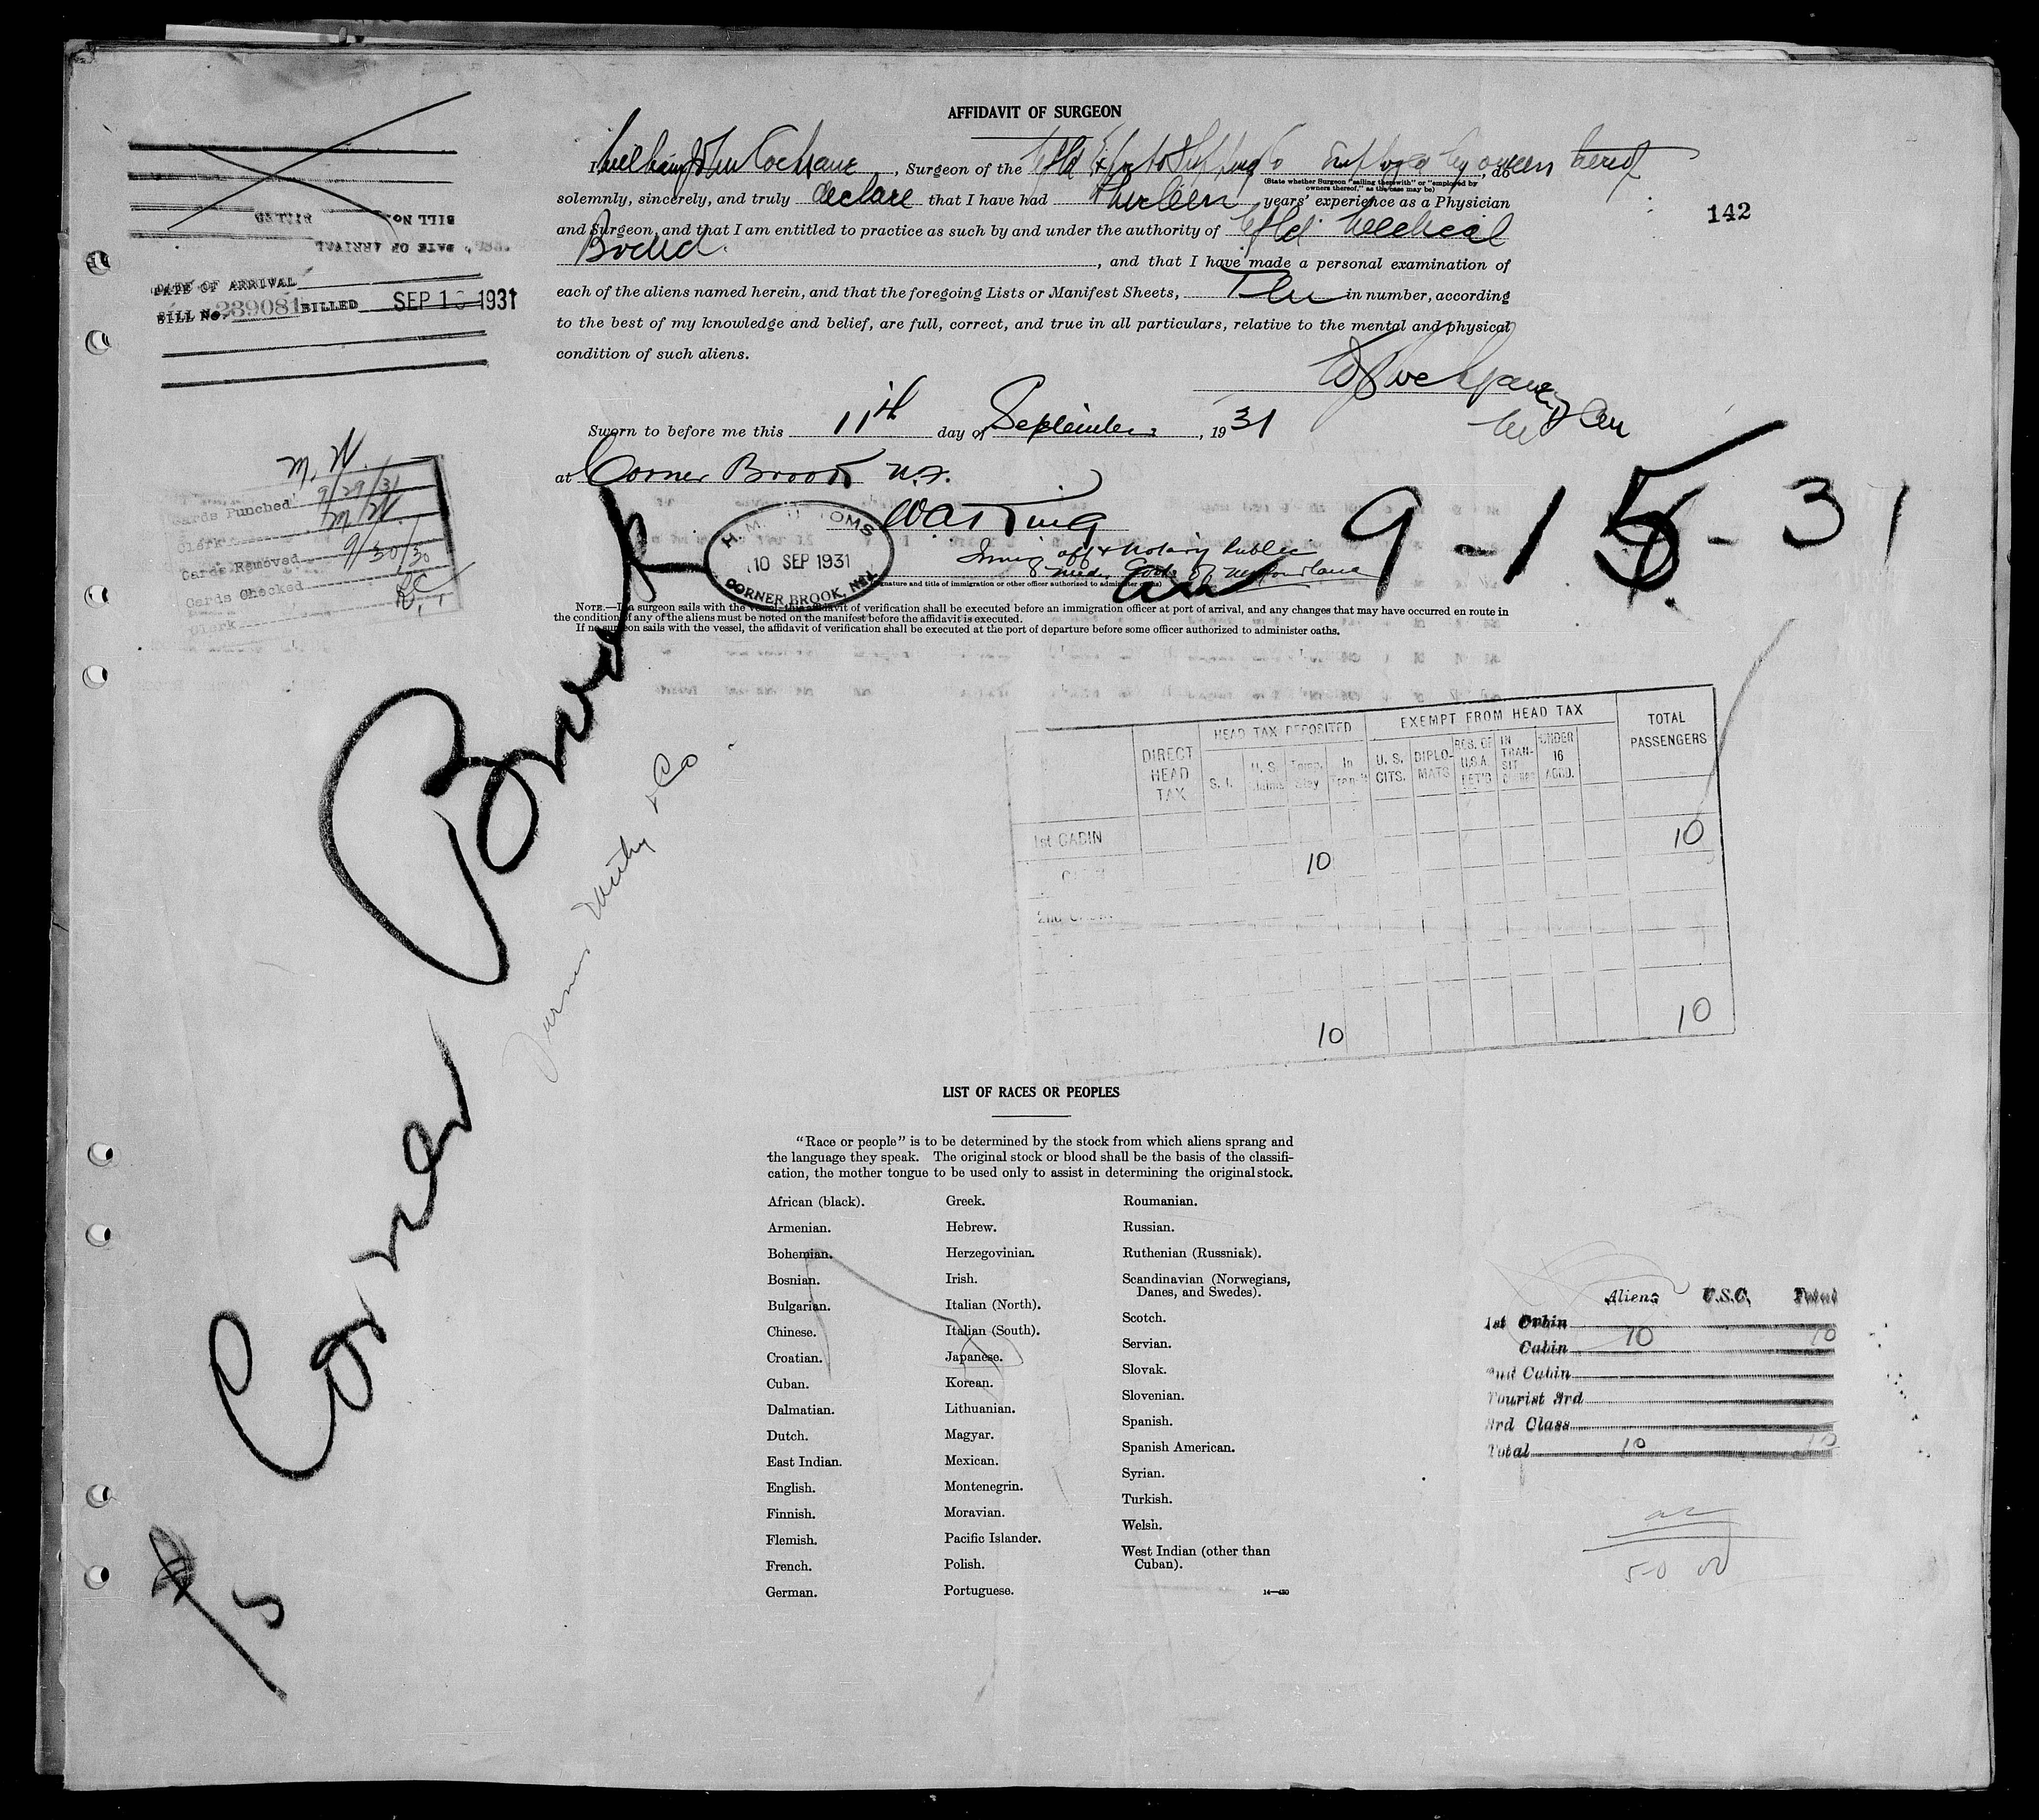 AFFIDAVIT OF SURGEON
I, William John Cochrane, Surgeon of the Nfld Export & Shipping Co employed by owners thereof, do
(State whether Surgeon "sailing therewith" or "employed by
owners thereof," as the case may be)
solemnly, sincerely, and truly declare that I have had thirteen years' experience as a Physician
and Surgeon, and that I am entitled to practice as such by and under the authority of Nfld. Medical
Board. , and that I have made a personal examination of
each of the aliens named herein, and that the foregoing Lists or Manifest Sheets, in number, according
to the best of my knowledge and belief, are full, correct, and true in all particulars, relative to the mental and physical
condition of such aliens.
142
BILL No. BILLED
DATE OF ARRIVAL
DATE OF ARRIVAL
BILL No. 239081 BILLED SEP 1 1931
Sworn to before me this 11th day of September, 1931
at Corner Brook N.F.
H. M. CUSTOMS
10 SEP 1931
CORNER BROOK, NFLD.
Immig off & Notary Public
under Govt of Newfoundland
(Signature and title of immigration or other officer authorized to administer oaths)
9-15-31
M. W.
Cards Punched 9/29/31
Clerk M. W.
Cards Removed
Cards Checked 9/30/30
Clerk
NOTE.—If a surgeon sails with the vessel, this affidavit of verification shall be executed before an immigration officer at port of arrival, and any changes that may have occurred en route in
the condition of any of the aliens must be noted on the manifest before the affidavit is executed.
If no surgeon sails with the vessel, the affidavit of verification shall be executed at the port of departure before some officer authorized to administer oaths.
Corner Brook
Furness Withy & Co
DIRECT HEAD TAX
HEAD TAX DEPOSITED
S. I. U. S. Claims Temp. Stay In Transit
EXEMPT FROM HEAD TAX
U. S. CITS. DIPLO-MATS RES. OF U.S.A. RET'G IN TRAN-SIT UNDER 16 ACCD.
TOTAL PASSENGERS
1st CABIN 10
CABIN 10
2nd CABIN
10 10
LIST OF RACES OR PEOPLES
"Race or people" is to be determined by the stock from which aliens sprang and
the language they speak. The original stock or blood shall be the basis of the classifi-
cation, the mother tongue to be used only to assist in determining the original stock.
African (black).
Armenian.
Bohemian.
Bosnian.
Bulgarian.
Chinese.
Croatian.
Cuban.
Dalmatian.
Dutch.
East Indian.
English.
Finnish.
Flemish.
French.
German.
Greek.
Hebrew.
Herzegovinian.
Irish.
Italian (North).
Italian (South).
Japanese.
Korean.
Lithuanian.
Magyar.
Mexican.
Montenegrin.
Moravian.
Pacific Islander.
Polish.
Portuguese.
Roumanian.
Russian.
Ruthenian (Russniak).
Scandinavian (Norwegians,
Danes, and Swedes).
Scotch.
Servian.
Slovak.
Slovenian.
Spanish.
Spanish American.
Syrian.
Turkish.
Welsh.
West Indian (other than
Cuban).
14—430
Aliens U.S.C. Total
1st Cabin
Cabin 10 10
2nd Cabin
Tourist 3rd
3rd Class
Total 10 10
50 00